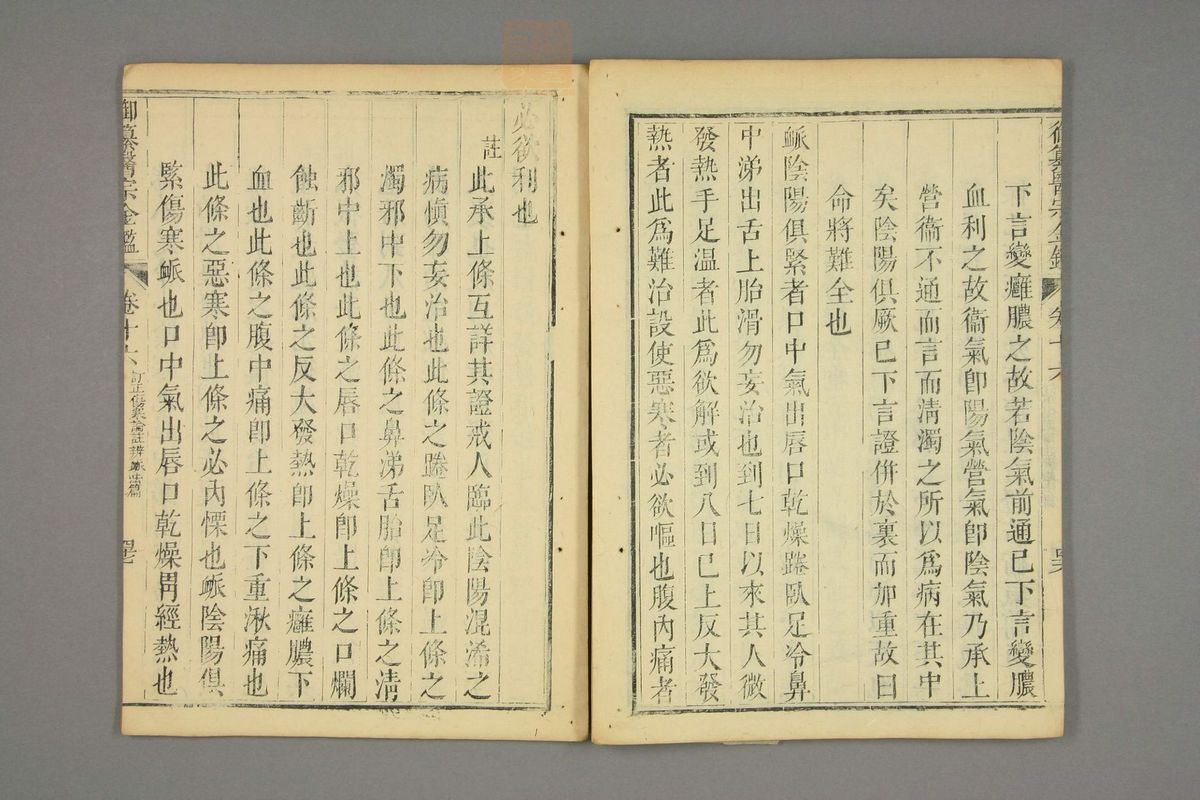 御纂醫宗金鑑 卷十六
下言變癰膿之故若陰氣前通已下言變膿
血利之故衞氣卽陽氣營氣卽陰氣乃承上
營衞不通而言而淸濁之所以爲病在其中
矣陰陽俱厥已下言證併於裏而加重故曰
命將難全也
脈陰陽俱緊者口中氣出唇口乾燥踡臥足冷鼻
中涕出舌上胎滑勿妄治也到七日以來其人微
發熱手足温者此爲欲解或到八日已上反大發
熱者此爲難治設使惡寒者必欲嘔也腹內痛者
必欲利也
註
此承上條互詳其證戒人臨此陰陽混淆之
病愼勿妄治也此條之踡臥足冷卽上條之
濁邪中下也此條之鼻涕舌胎卽上條之淸
邪中上也此條之唇口乾燥卽上條之口爛
蝕齗也此條之反大發熱卽上條之癰膿下
血也此條之腹中痛卽上條之下重湫痛也
此條之惡寒卽上條之必內慄也脈陰陽俱
緊傷寒脈也口中氣出唇口乾燥胃經熱也
御纂醫宗金鑑 卷十六 訂正傷寒論註辨脈法篇